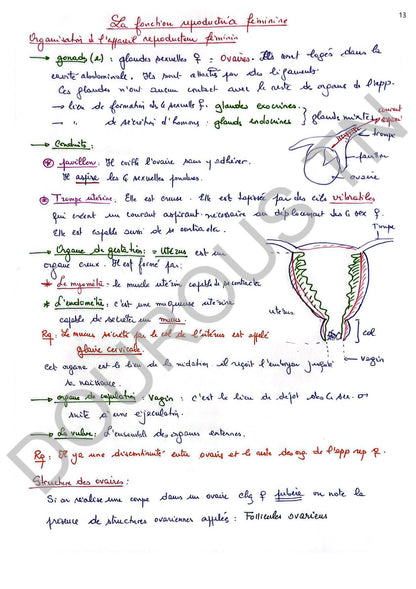 13
La fonction reproductrice féminine
Organisation de l'appareil reproducteur féminin
→ gonads (2) : glandes sexuelles ♀ = ovaires. Ils sont logés dans la
cavité abdominale. Ils sont attachés par des ligaments.
Ces glandes n'ont aucun contact avec le reste de organe de l'app.
→ lieu de formation des ¢ sexuelles ♀ : glandes exocrines
→ " de sécrétion d'hormons : glands endocrines
glands mixtes
courant
aspirant
trompe
pavillon
ovaire
→ Conduits :
* pavillon : Il coiffe l'ovaire sans y adhérer.
Il aspire les ¢ sexuelles pondues.
* Trompe utérine. Elle est creuse. Elle est tapissée par des cils vibratiles
qui créent un courant aspirant nécessaire au déplacement des ¢ sex ♀.
Elle est capable aussi de se contracter.
Trompe
→ Organe de gestation : → Utérus est un
organe creux. Il est formé par :
* Le myomètre : le muscle utérin capable de se contracter
* L'endomètre : c'est une muqueuse utérine
capable de sécréter un mucus.
utérus
col
vagin
Rq : Le mucus sécrété par le col de l'utérus est appelé
glaire cervicale.
Cet organe est le lieu de la nidation. il reçoit l'embryon jusqu'à
sa naissance.
→ organe de copulation : Vagin : c'est le lieu de dépôt des ¢ sex ♂
suite à une éjaculation.
→ La vulve : L'ensemble des organes externes.
Rq : Il y a une discontinuité entre ovaire et le reste des org. de l'app rep ♀.
Structure des ovaires :
Si on réalise une coupe dans un ovaire chez ♀ pubère on note la
présence de structures ovariennes appelées : Follicules ovariens
DOUROUS TN